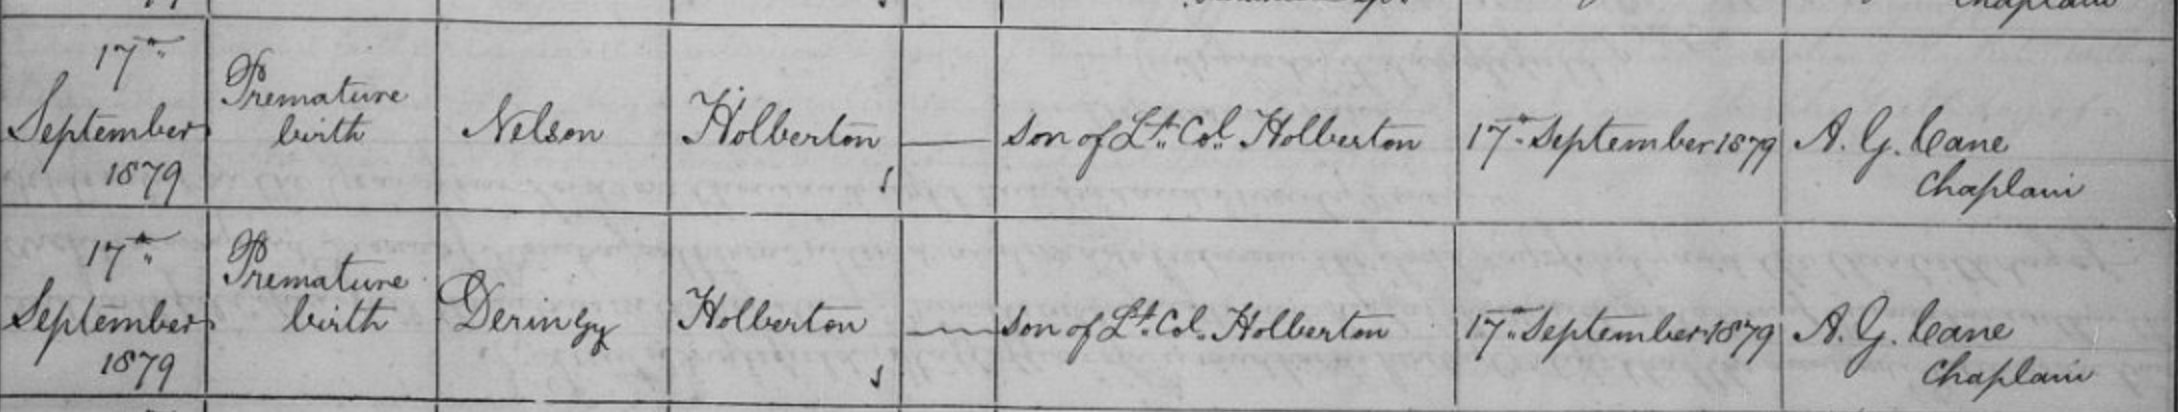 Chaplain
17th
September
1879
Premature
birth
Nelson
Holberton
—
Son of Lt. Col. Holberton
17th September 1879
A. G. Cane
Chaplain
17th
September
1879
Premature
birth
Holberton
—
Son of Lt. Col. Holberton
17th September 1879
A. G. Cane
Chaplain